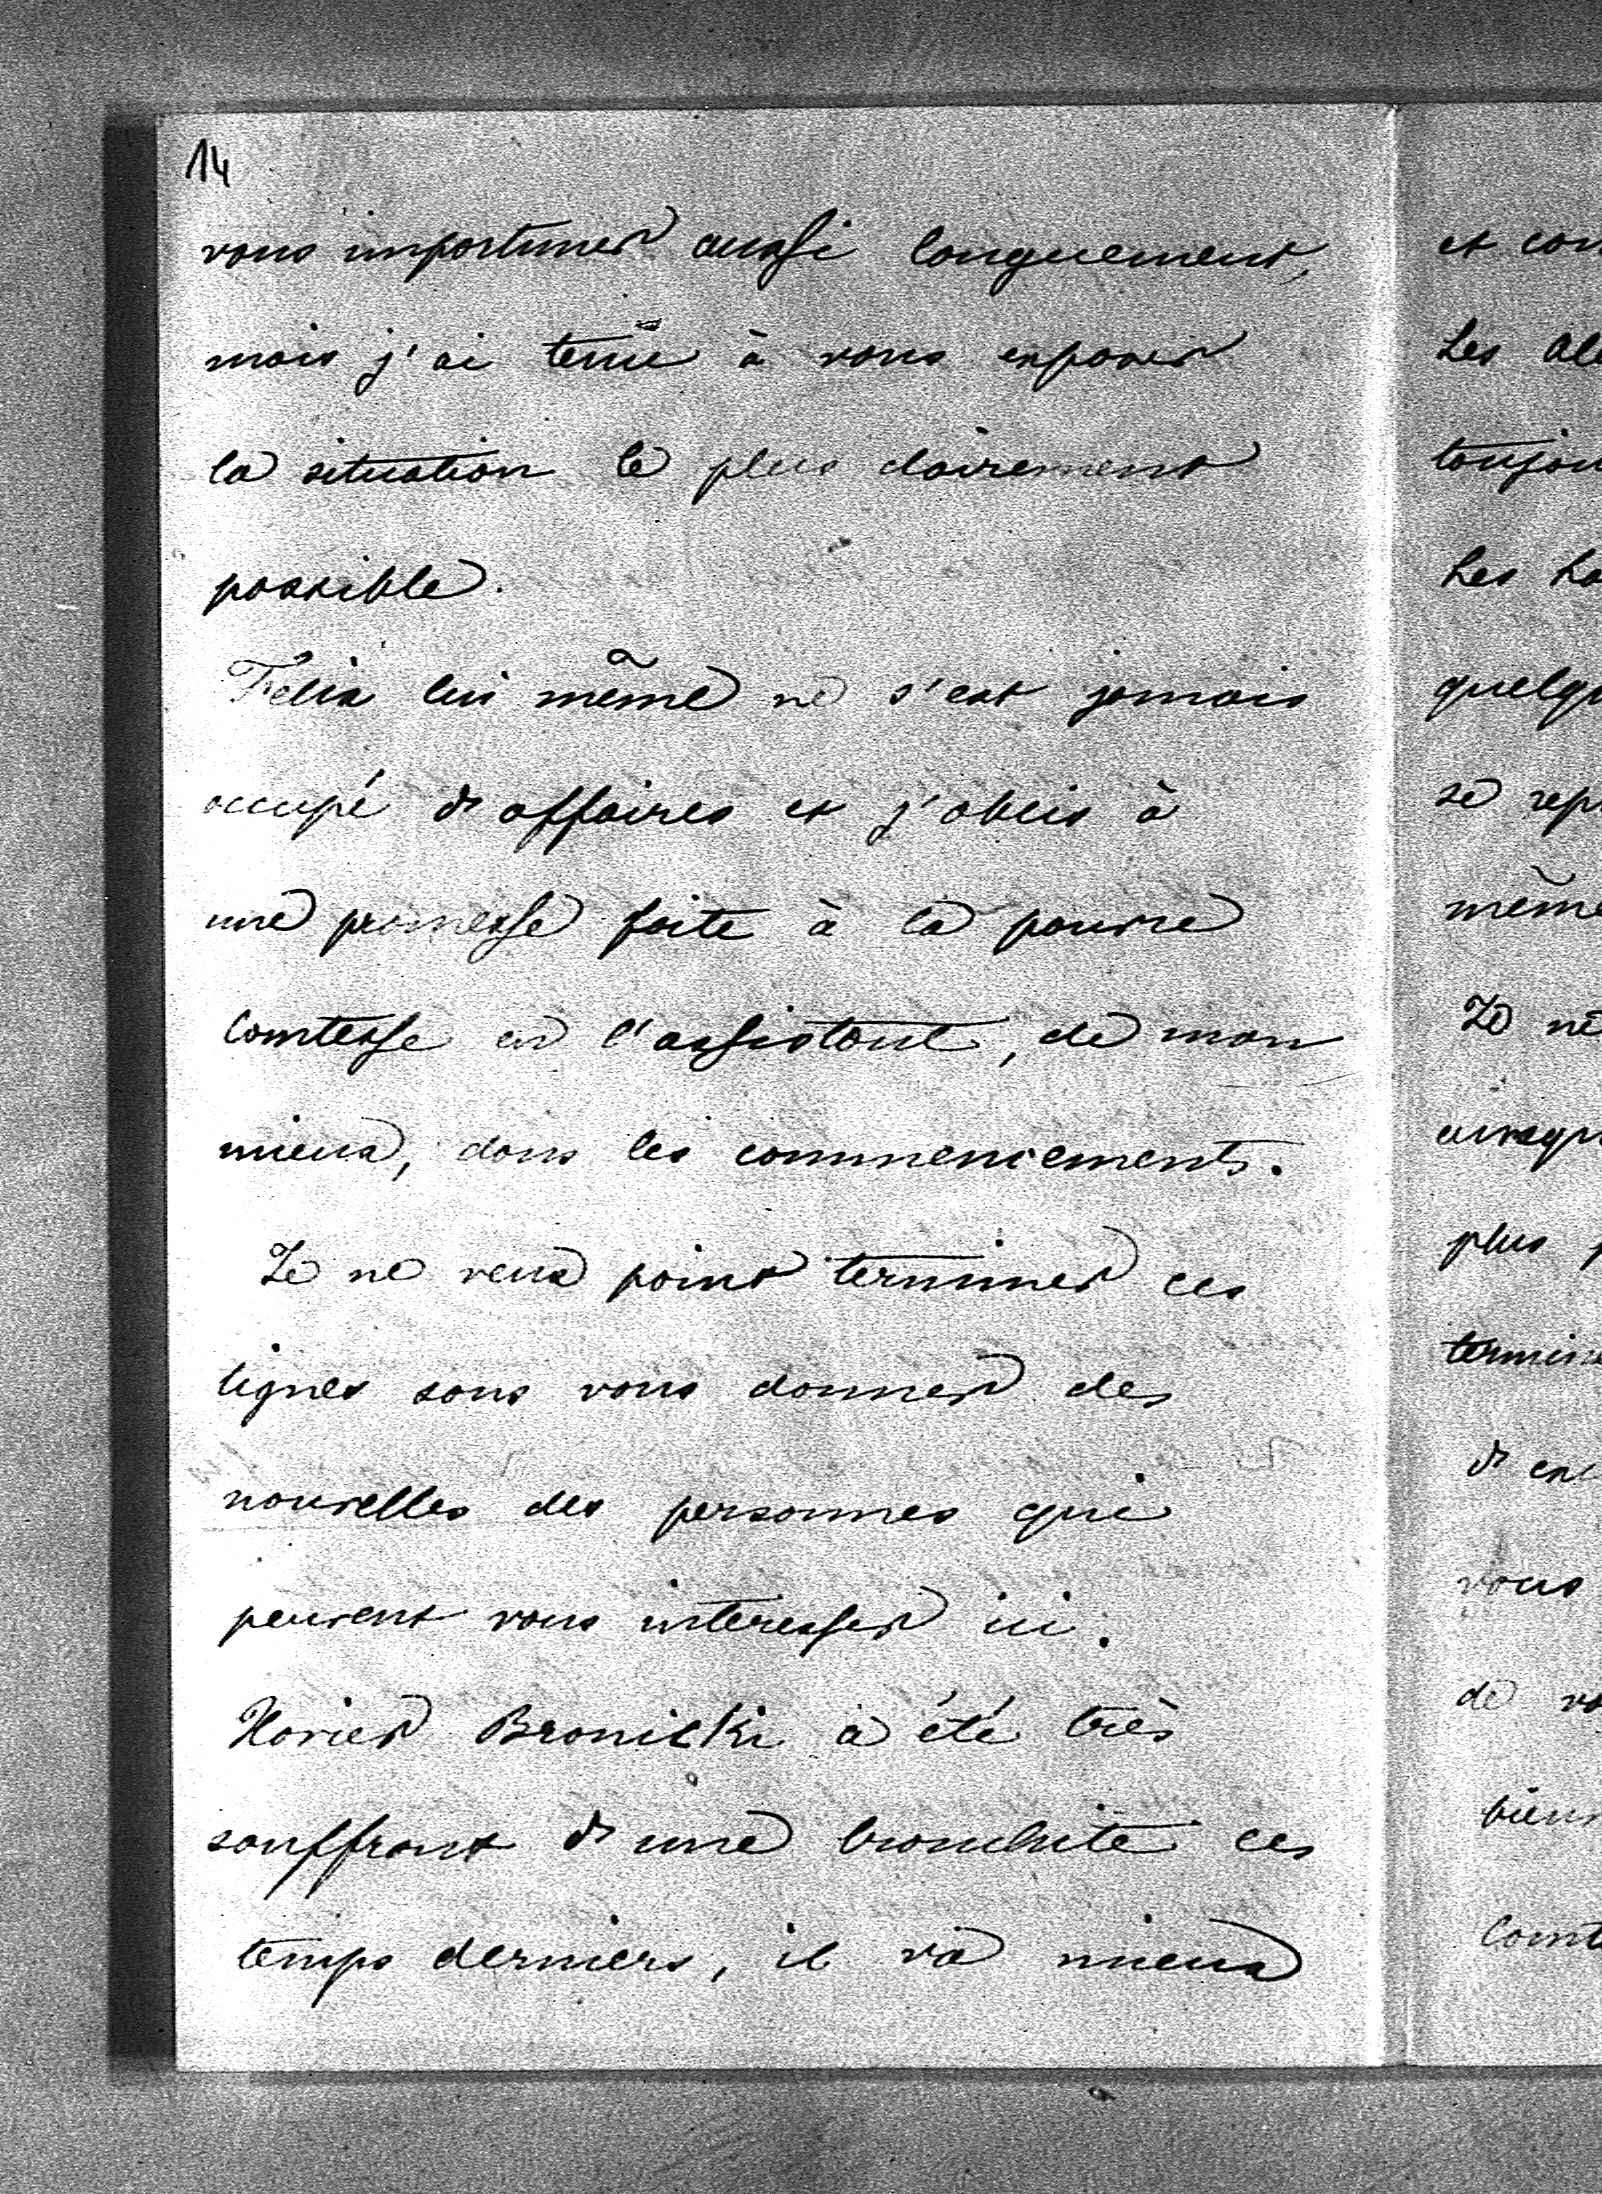 14
vous importuner aussi longuement,
mais j'ai tenu à vous exposer
la situation le plus clairement
possible.
Félix lui même ne s'est jamais
occupé d'affaires et j'obéis à
une promesse faite à la pauvre
Comtesse en l'assistant, de mon
mieux, dans les commencements.
Je ne veux point terminer ces
lignes sans vous donner des
nouvelles des personnes qui
peuvent vous intéresser ici.
Xavier Branicki a été très
souffrant d'une bronchite ces
temps derniers, il va mieux
et
Les
toujou
Les
quelqu
se
même
Je ne
plus
termine
vous
de
Comte